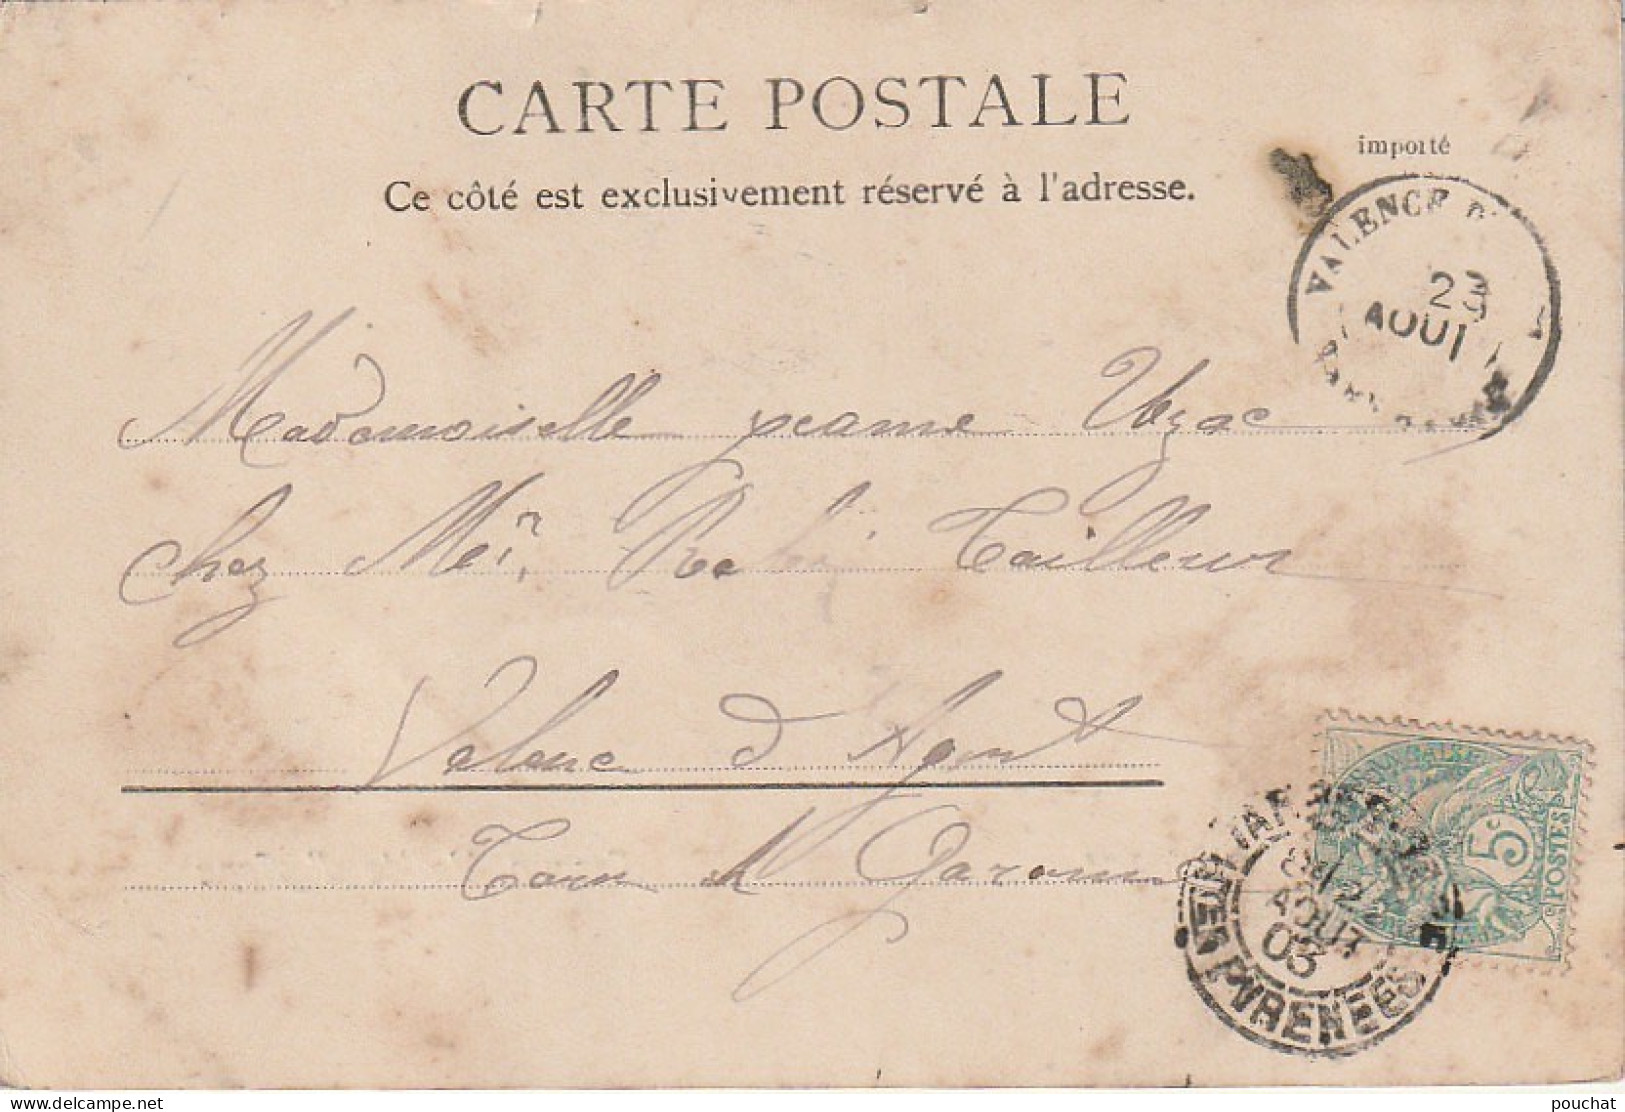 CARTE POSTALE
importé
Ce côté est exclusivement réservé à l'adresse.
VALENCE D'
23
AOUT
Mademoiselle Jeanne
chez Mr Tailleur
Valence d'Agen
Tarn et Garonne
5c
POSTES
TARBES
22
AOUT
03
HTES PYRENEES
delcampe.net
pouchat